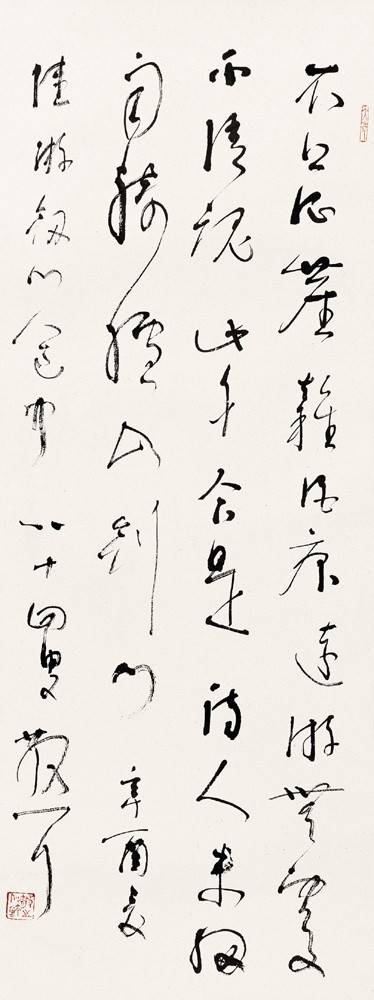 衣上征塵雜酒痕遠游無處
不消魂此身合是詩人未細
雨騎驢入劍門 辛酉夏
陸游劍門途中 八十四叟 散耳